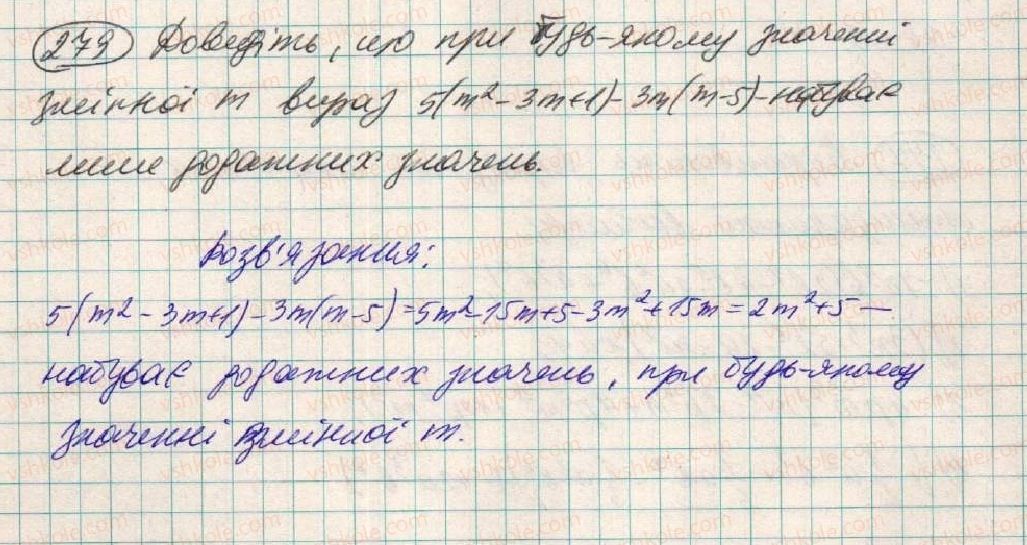 279 Доведіть, що при будь-якому значенні
змінної m вираз 5(m² - 3m+1) - 3m(m-5) - набуває
лише додатних значень.
Розв'язання:
5(m² - 3m+1) - 3m(m-5) = 5m² - 15m + 5 - 3m² + 15m = 2m² + 5 —
набуває додатних значень, при будь-якому
значенні змінної m.